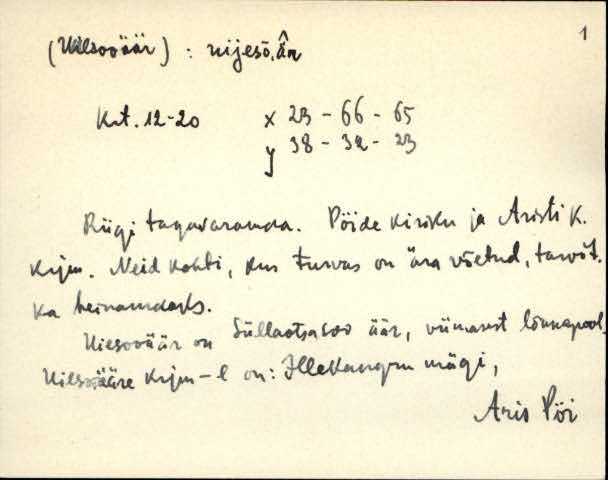 1
(Uiesooäär) : uijesō, än
Kat. 12-20 x 23 - 66 - 65
y 38 - 32 - 23
Riigi tagavaramaa. Pöide kiriku ja Aristi k.
krjm. Neid kohti, kus turvas on ära võetud, tarvit.
ka heinamaaks.
Uiesooäär on Süllaotsasoo äär, viimasest lõunapool.
Uiesooääre krjm-l on: Illekangru mägi,
Aris Pöi